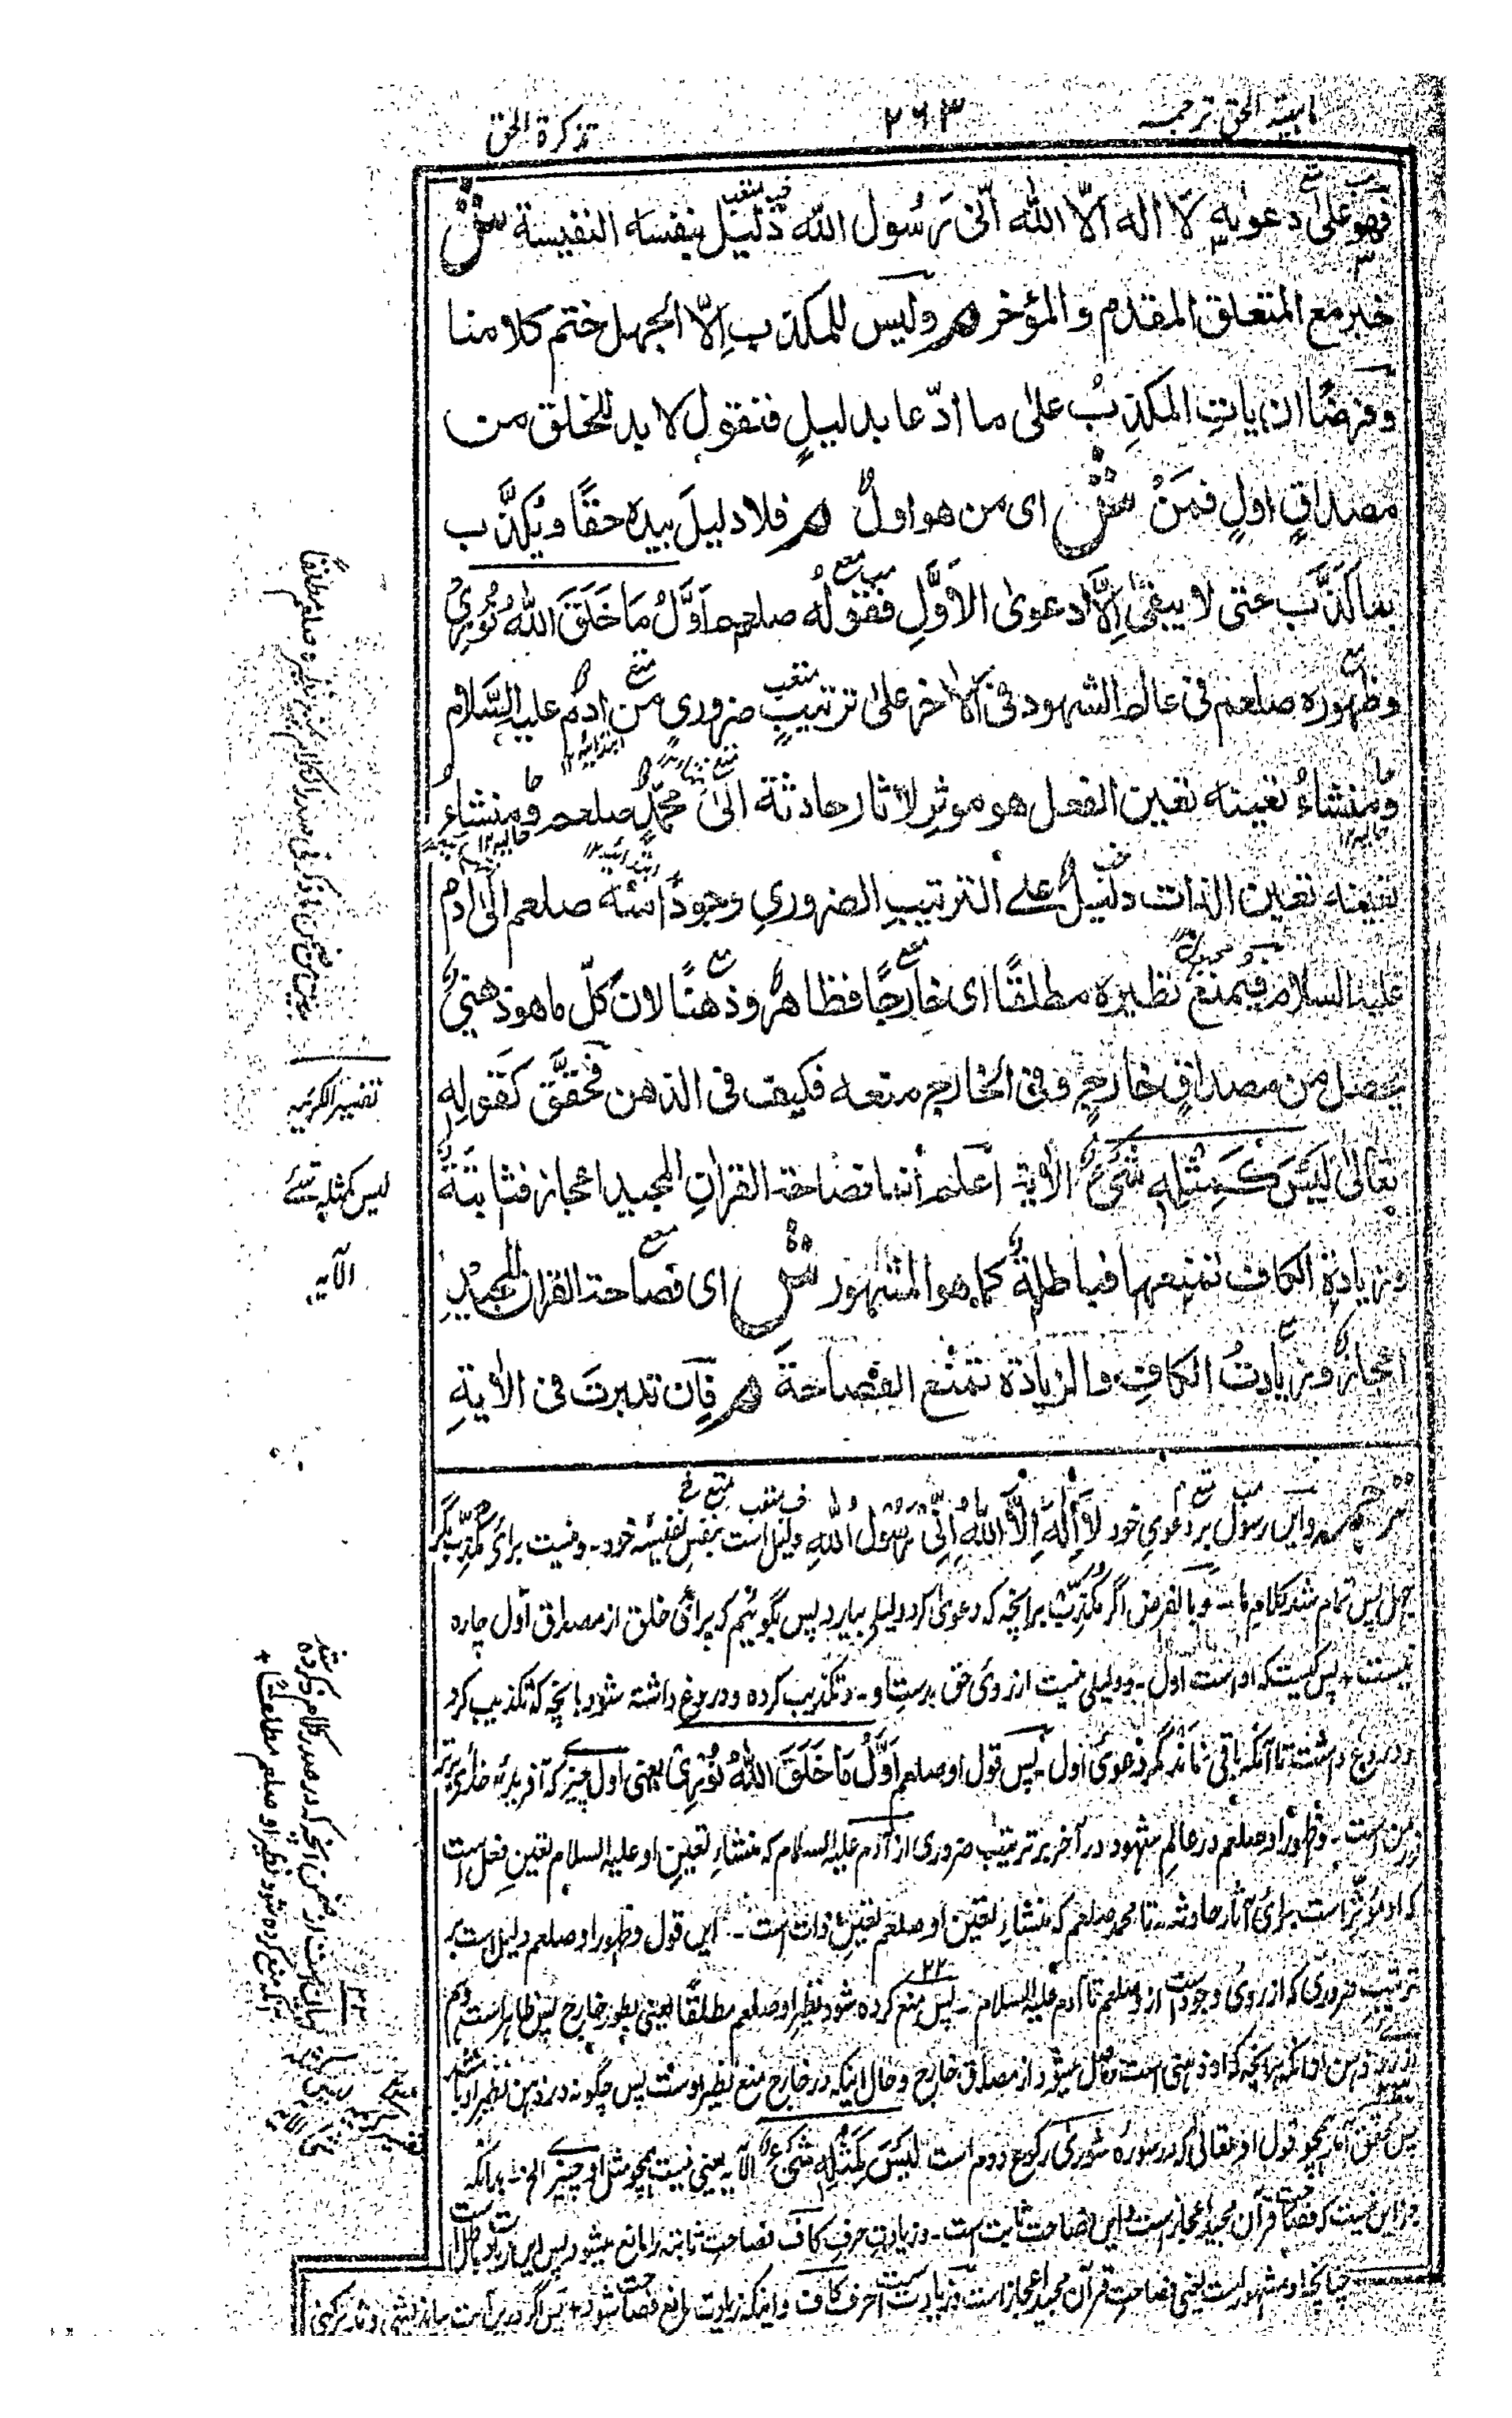 ترجمہ
۲۶۳
تذكرة الحق
فهو على دعوىه لا اله الا الله انّى رسول الله دليل بنفسه النفيسة ش
خبر مع المتعلق المقدم والمؤخر هر وليس للمكذب الّا الجهل ختم كلامنا
وفرضًا ان يات المكذبُ على ما ادّعا بدليلٍ فنقول لا بد للخلق من
مصداقٍ اولٍ فمَنْ ش اى من هو اولٌ هر فلا دليلَ بيده حقًا ويُكذَّب
بما كَذَّب عنى لا يبقى الَّا دعوى الاَوَّلِ فقوله صلعم اَوَّلُ مَا خَلَقَ اللهُ نُوْرِيْ
وظهوره صلعم فى عالم الشهود فى الاٰخر على ترتيبٍ ضرورىٍ من ادم عليه السَّلام
ومنشاءُ تعينه تعين الفعل هو موثرٍ لاٰثار حادثة الىٰ محمّدٍ صلعم ومنشاءُ
تعينه تعين الذات دليلٌ على الترتيبِ الضرورىِ وجودًا منه صلعم الىٰ ادم
عليه السلام فيمنع نظيره مطلقًا اى خارجًا فظاهرٌ وذهنًا لان كلّ ما هو ذهنىٌّ
يحصل من مصداقٍ خارجٍ وفى الخارج منعه فكيف فى الذهن فحقَّقَ كقولهٖ
تعالىٰ لَيْسَ كَمِثْلِهٖ شَىْءٌ الاٰية اعلم انما فصاحة القراٰن المجيد اعجاز فثابتةٌ
وزيادة الكاف تمنعها فباطلةٌ كما هو المشهور ش اى فصاحة القراٰن المجيدِ
اعجازٌ وزيادتُ الكافِ والزيادة تمنع الفصاحةَ هر فان تدبرتَ فى الاٰيةِ
واين رسول بر دعوىِ خود لَا اِلٰهَ اِلَّا اللهُ اِنِّىْ رَسُوْلُ اللهِ دليل است بنفس نفيسهٔ خود ۔ ونيست برائ مكذب مگر
جهل پس تمام شد كلام ما ۔ وبالفرض اگر مكذبْ برانچه كه دعوىٰ كرد دليلے بيارد پس بگوئيم كه برائ خلق از مصداق اول چاره
نيست + پس كيست كه او است اول ۔ ودليلے نيست از روئ حق بدستِ او ۔ وتكذيب كرده ودروغ داشته شود بانچه كه تكذيب كرد
ودروغ داشت تا آنكه باقى نماند مگر دعوىٔ اول ۔ پس قول او صلعم اَوَّلُ مَا خَلَقَ اللهُ نُوْرِىْ يعنى اول چيزے كه آفريد خدائ برتر
نور من است ۔ وظهور او صلعم در عالم شهود در آخر بر ترتيب ضرورى از آدم عليه السلام كه منشاءِ تعين او عليه السلام تعين فعل است
كه او مؤثر است برائ آثار حادثه ۔ تا محمد صلعم كه منشاءِ تعين او صلعم تعين ذات است ۔ اين قول وظهور او صلعم دليل است بر
ترتيب ضرورى كه از روئ وجود است از و صلعم تا آدم عليه السلام ۔ پس منع كرده شود نظير او صلعم مطلقًا يعنى بطور خارج پس ظاهر است وهم
ذهن او انكه هر انچه كه او ذهنى است حاصل ميشود از مصداق خارج وحال اينكه در خارج منع نظير اوست پس چگونه در ذهن نظير او باشد
پس محقق همچو قول او تعالىٰ كه در سورۂ شورىٰ ركوع دوم است لَيْسَ كَمِثْلِهٖ شَىْءٌ الآيه يعنى نيست همچو مثل او چيزے الخ بدانكه
جز اين نيست كه فصاحت قرآن مجيد اعجاز است واين فصاحت ثابت است ۔ وزيادتِ حرفِ كاف فصاحتِ ثابته را مانع ميشود پس اين زيادت باطل است
چنانچه او مشهور است يعنى فصاحتِ قرآن مجيد اعجاز است وزيادت است حرف كاف واينكه زيادت مانع فصاحت شود + پس اگر در آيت
تفسير الكريمه
ليس كمثله شئ
الآيه